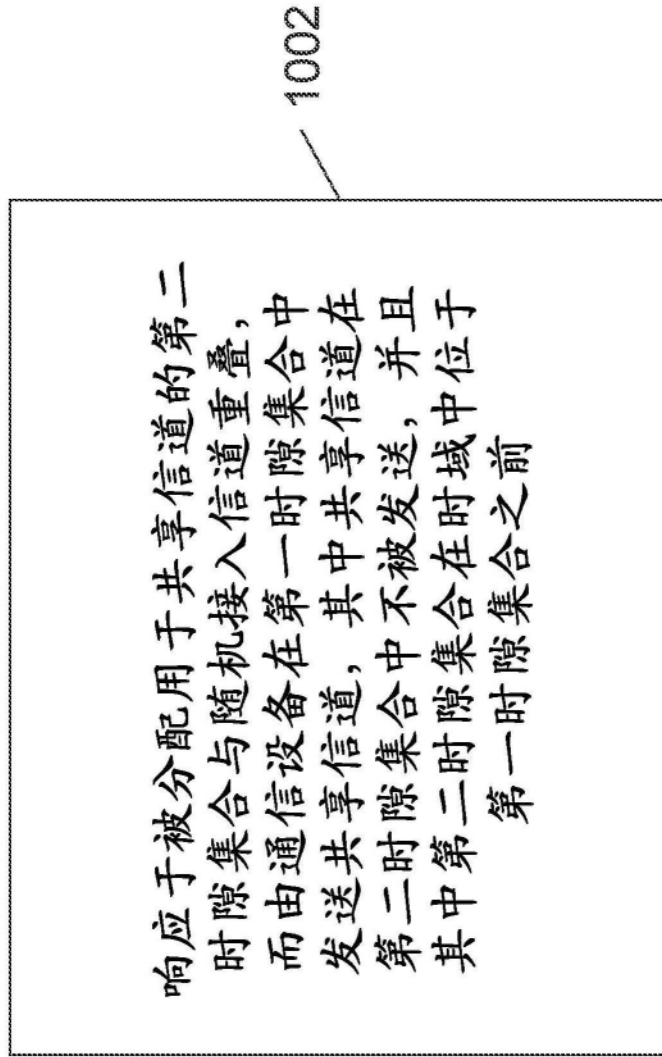 响应于被分配用于共享信道的第二
时隙集合与随机接入信道重叠，
而由通信设备在第一时隙集合中
发送共享信道，其中共享信道在
第二时隙集合中不被发送，并且
其中第二时隙集合在时域中位于
第一时隙集合之前
1002